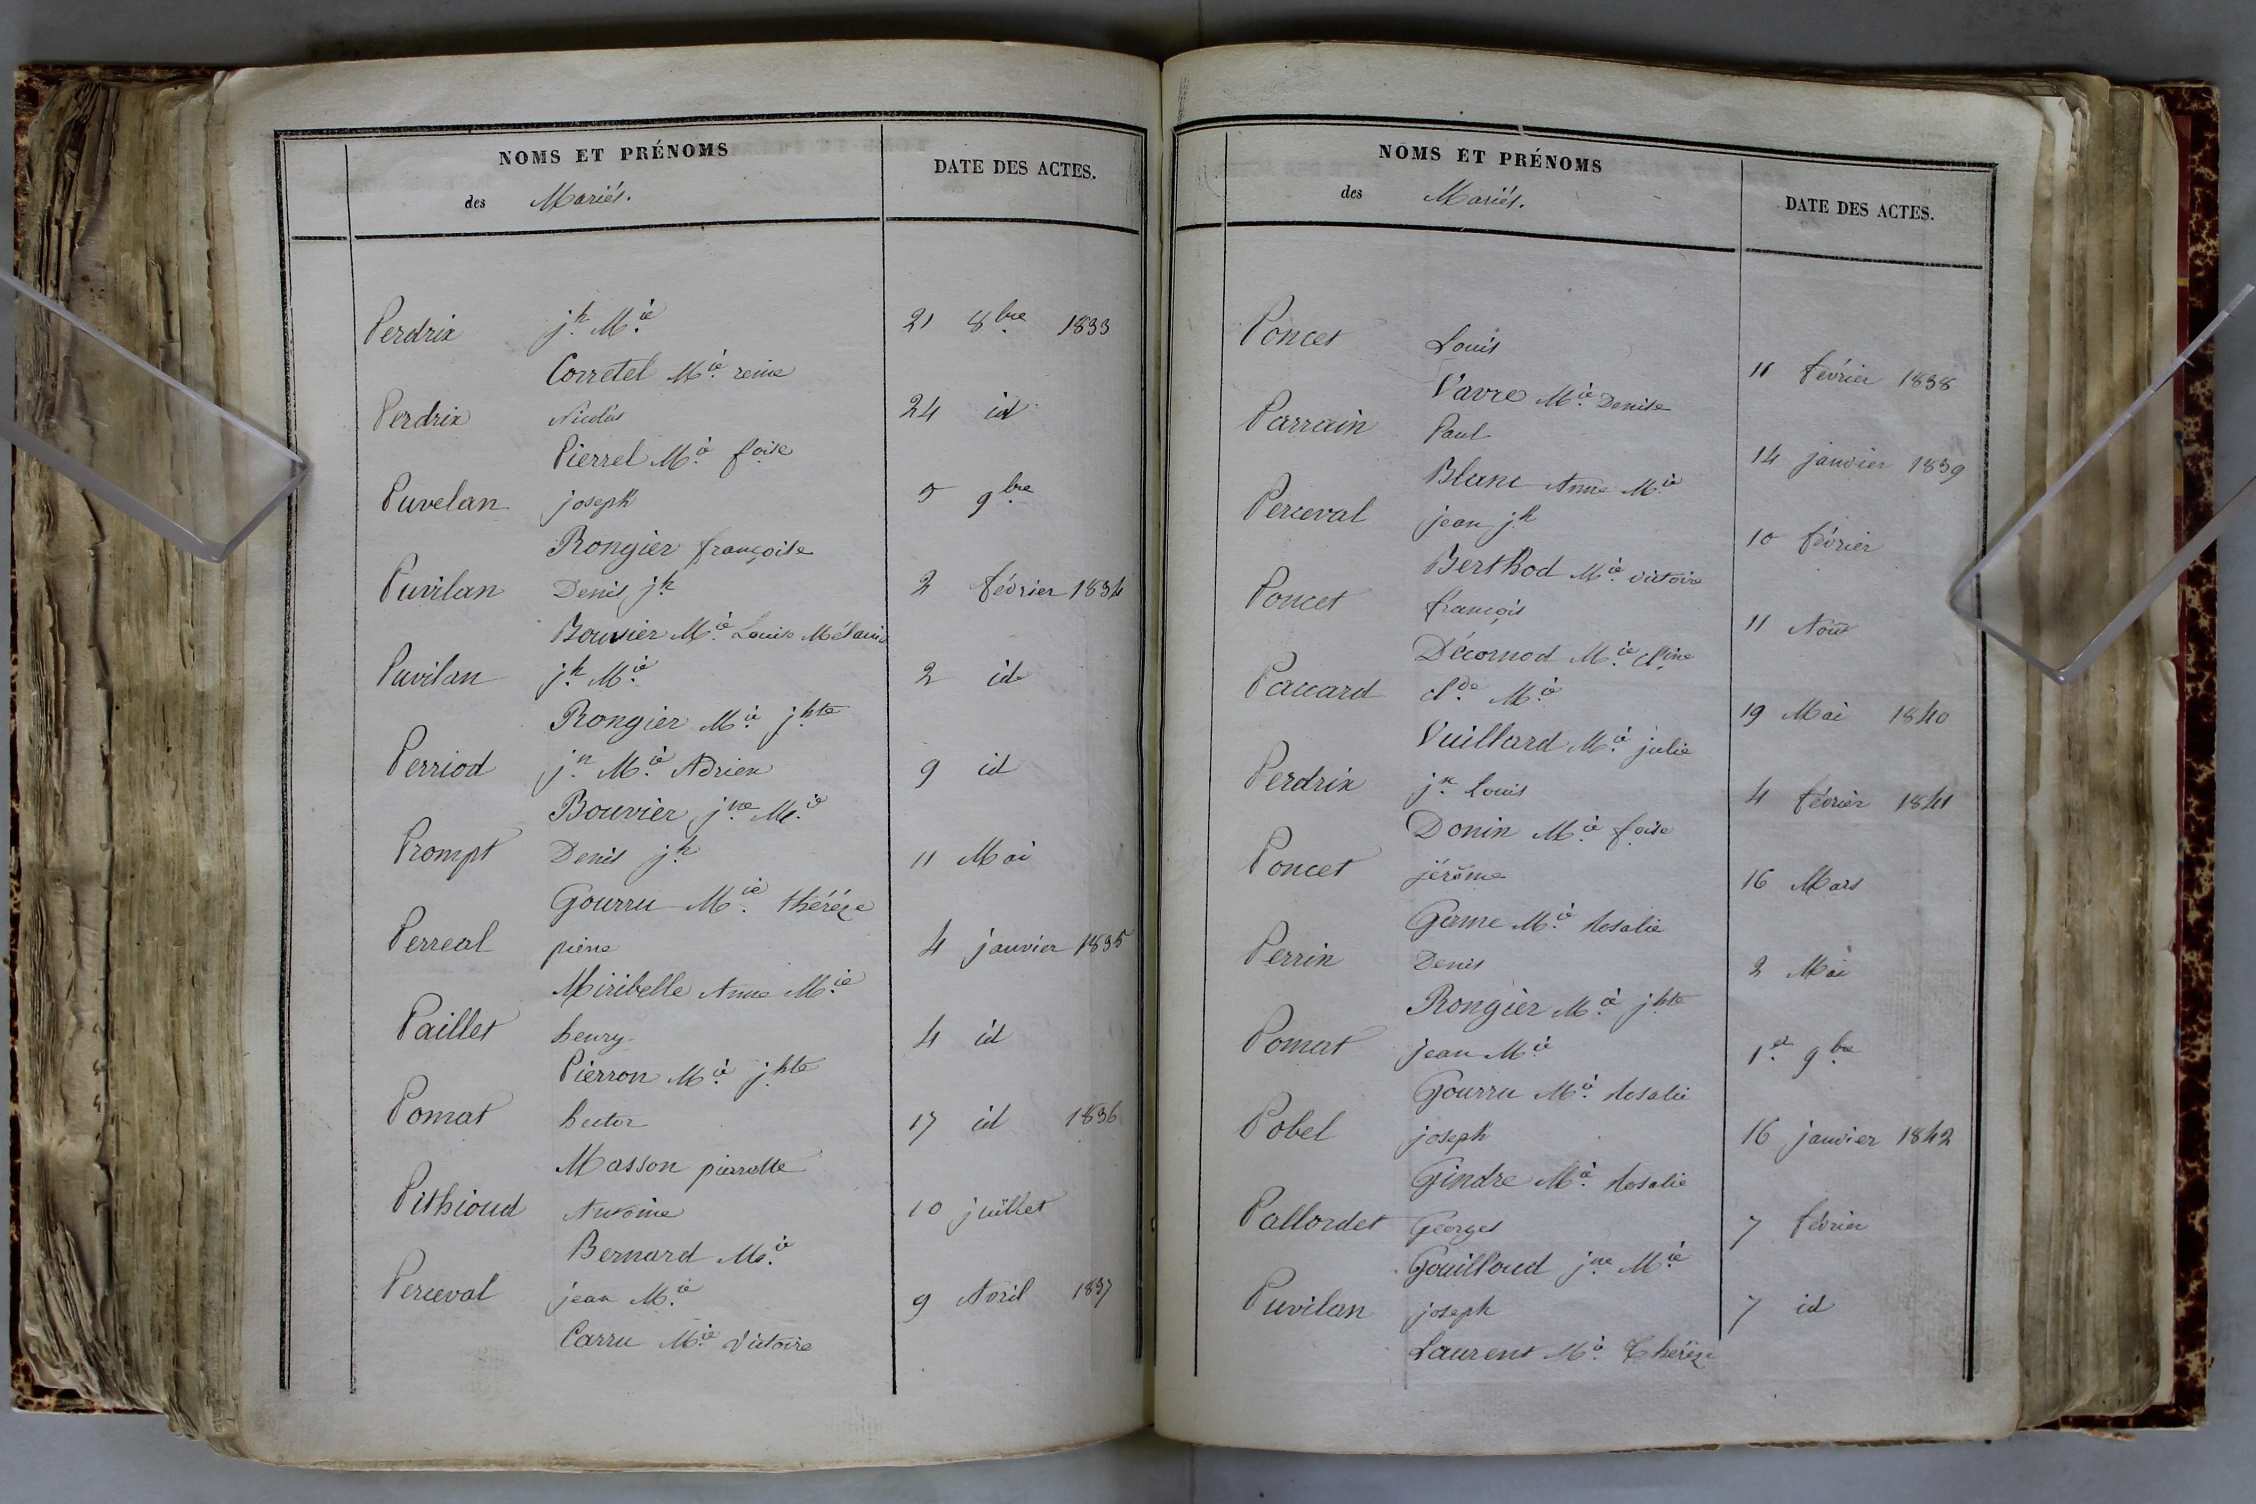 NOMS ET PRÉNOMS
des Mariés.
DATE DES ACTES.
Perdrix jh. Mie. 21 8bre. 1833
Corretel Mie. reine
Perdrix Nicolas 24 id
Pierrel Mie. foise
Puvelan joseph 5 9bre
Rongier françoise
Puvilan Denis jh. 2 février 1834
Bouvier Mie. Louise Mélanie
Puvilan jh. Mie. 2 id
Rongier Mie. jhte
Perriod jn. Mie. Adrien 9 id
Bouvier jne. Mie.
Prompt Denis jh. 11 Mai
Gourru Mie. thérèze
Perreal pierre 4 janvier 1835
Miribelle Anne Mie.
Paillet henry 4 id
Pierron Mie. jhte
Pomat hector 17 id 1836
Masson pierrette
Pithioud Antoine 10 juillet
Bernard Mie.
Perceval jean Mie. 9 Avril 1837
Carru Mie. Victoire
NOMS ET PRÉNOMS
des Mariés.
DATE DES ACTES.
Poncet Louis 11 février 1838
Vavre Mie. Denise
Parrain Paul 14 janvier 1839
Blanc Anne Mie.
Perceval jean jh. 10 février
Berthod Mie. victoire
Poncet françois 11 Août
Décornod Mie. cline
Paccard Cde. Mie. 19 Mai 1840
Vuillard Mie. julie
Perdrix jn. Louis 4 février 1841
Donin Mie. foise
Poncet jérôme 16 Mars
Game Mie. Rosalie
Perrin Denis 2 Mai
Rongier Mie. jhte
Pomat Jean Mie. 1er. 9bre
Gourru Mie. Rosalie
Pobel joseph 16 janvier 1842
Gindre Mie. Rosalie
Pallordet Georges 7 février
Gouilloud jne. Mie.
Puvilan joseph 7 id
Laurent Mie. Thérèze